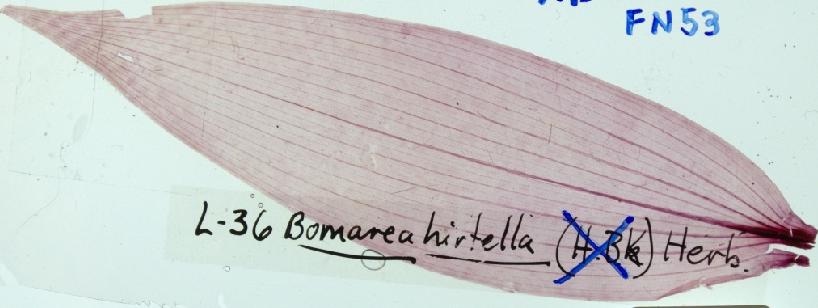 FN53
L-36 Bomarea hirtella (H.BK) Herb.